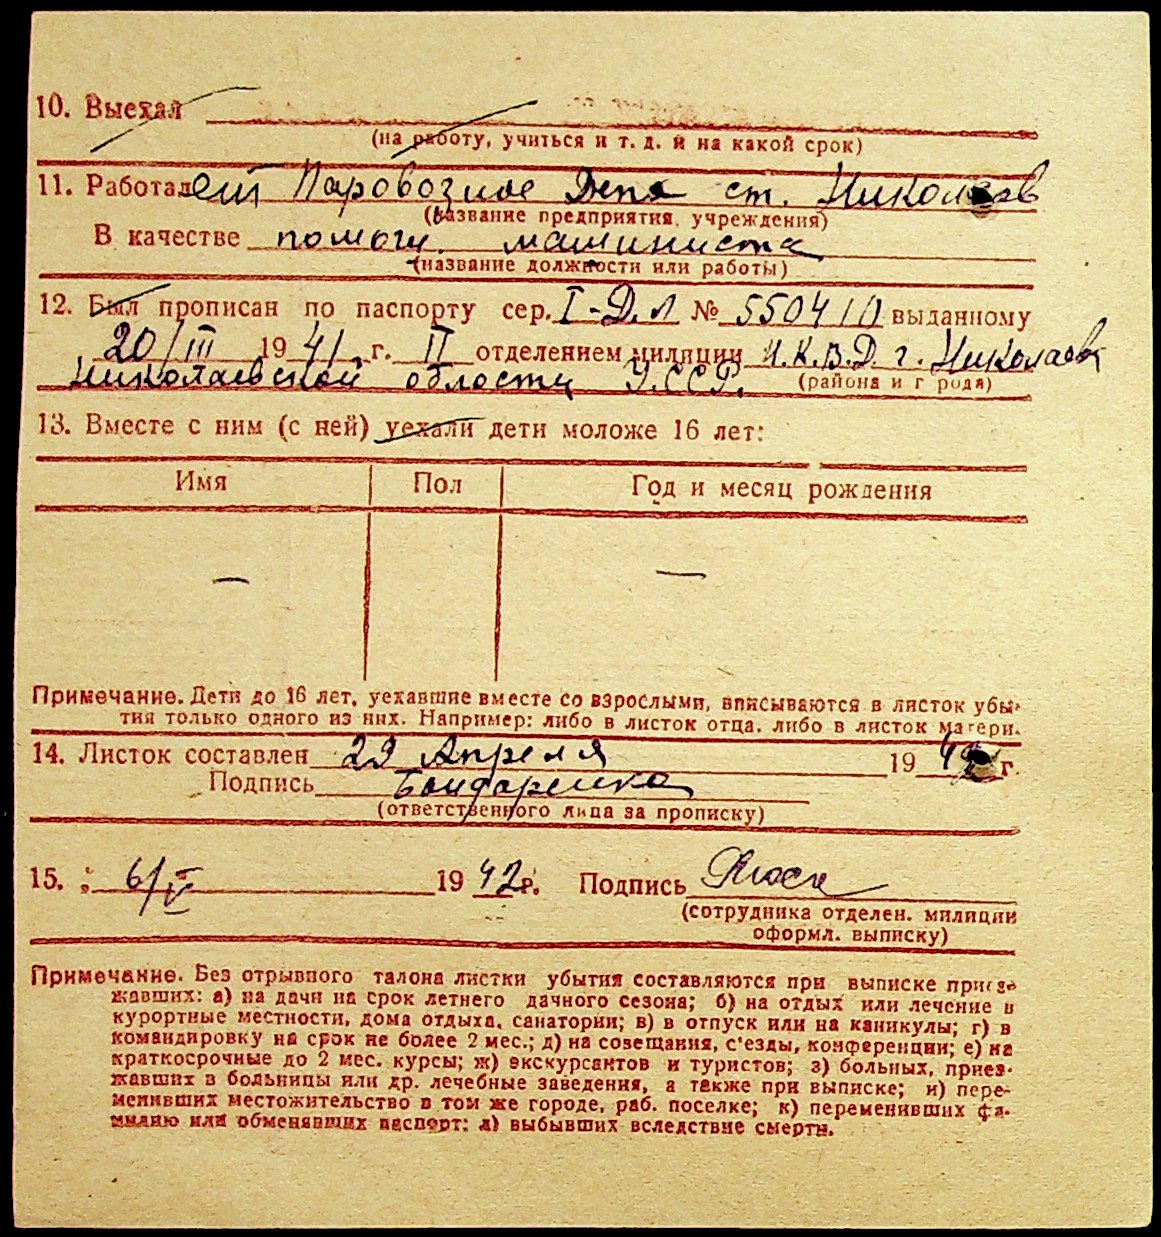 10. Выехал
(на работу, учиться и т. д. и на какой срок)
11. Работает Паровозное Депо ст. Николаев
(название предприятия, учреждения)
В качестве помощн. машиниста
(название должности или работы)
12. Был прописан по паспорту сер. I-Д.Л № 550410 выданному
20/III 1941 г. II отделением милиции Н.К.В.Д. г. Николаев
Николаевской области У.С.С.Р. (района и г рода)
13. Вместе с ним (с ней) уехали дети моложе 16 лет:
Имя Пол Год и месяц рождения
— —
Примечание. Дети до 16 лет, уехавшие вместе со взрослыми, вписываются в листок убы-
тия только одного из них. Например: либо в листок отца, либо в листок матери.
14. Листок составлен 29 Апреля 1942 г.
Подпись Бондаренко
(ответственного лица за прописку)
15. 6/V 1942 г. Подпись
(сотрудника отделен. милиции
оформл. выписку)
Примечание. Без отрывного талона листки убытия составляются при выписке приез-
жавших: а) на дачи на срок летнего дачного сезона; б) на отдых или лечение в
курортные местности, дома отдыха, санатории; в) в отпуск или на каникулы; г) в
командировку на срок не более 2 мес.; д) на совещания, с'езды, конференции; е) на
краткосрочные до 2 мес. курсы; ж) экскурсантов и туристов; з) больных, приез-
жавших в больницы или др. лечебные заведения, а также при выписке; и) пере-
менивших местожительство в том же городе, раб. поселке; к) переменивших фа-
милию или обменявших паспорт; л) выбывших вследствие смерти.